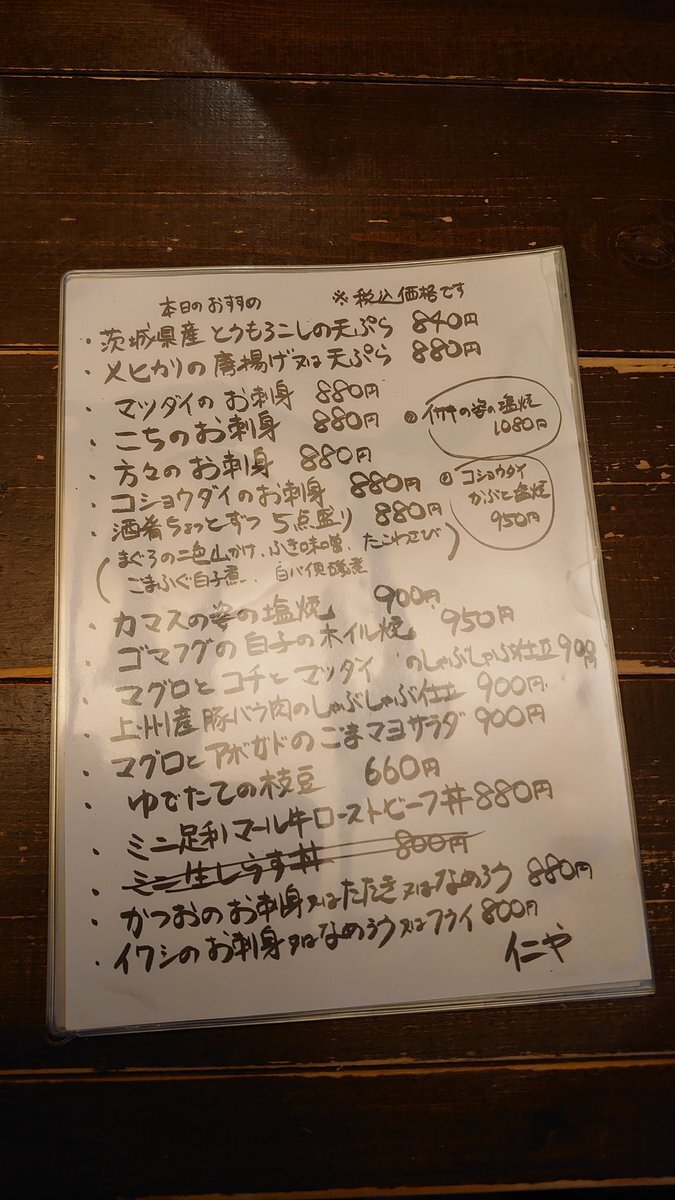 本日のおすすめ ※税込価格です
・茨城県産とうもろこしの天ぷら 840円
・メヒカリの唐揚げ又は天ぷら 880円
・マツダイのお刺身 880円
・こちのお刺身 880円
・方々のお刺身 880円
・コショウダイのお刺身 880円
・酒肴ちょっとずつ5点盛り 880円
(まぐろの二色山かけ、ふき味噌、たこわさび
ごまふぐ白子煮、白バイ貝醸煮)
◎イサキの姿の塩焼
1080円
◎コショウダイ
かぶと塩焼
950円
・カマスの姿の塩焼 900円
・ゴマフグの白子のホイル焼 950円
・マグロとコチとマツダイのしゃぶしゃぶ仕立 900円
・上州産豚バラ肉のしゃぶしゃぶ仕立 900円
・マグロとアボガドのごまマヨサラダ 900円
・ゆでたての枝豆 660円
・ミニ足利マール牛ローストビーフ丼 880円
・ミニ生しらす丼 800円
・かつおのお刺身又はたたき又はなめろう 880円
・イワシのお刺身又はなめろう又はフライ 800円
仁や